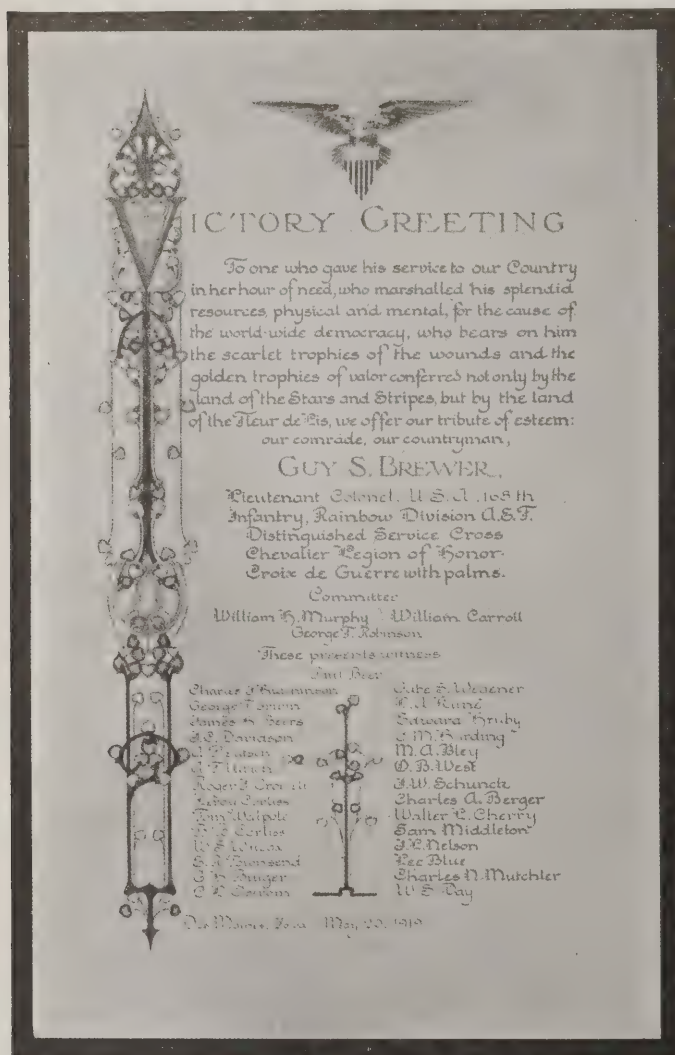 VICTORY GREETING
To one who gave his service to our Country
in her hour of need, who marshalled his splendid
resources, physical and mental, for the cause of
the world-wide democracy, who bears on him
the scarlet trophies of the wounds and the
golden trophies of valor conferred not only by the
land of the Stars and Stripes, but by the land
of the Fleur de Lis, we offer our tribute of esteem:
our comrade, our countryman,
GUY S. BREWER,
Lieutenant Colonel, U.S.A. 168th
Infantry, Rainbow Division A.E.F.
Distinguished Service Cross
Chevalier Legion of Honor
Croix de Guerre with palms.
Committee
William H. Murphy William Carroll
George F. Robinson
These presents witness
Paul Beer
Charles
George
James Beers
Davidson
Roger
Corliss
Tom Walpole
Corliss
W.
Townsend
Wegener
Edward Hruby
Harding
M.A. Bley
O.B. West
J.W. Schunck
Charles A. Berger
Walter L. Cherry
Sam Middleton
J.L. Nelson
Lee Blue
Charles N. Mutchler
W.S. Day
Des Moines, Iowa May 20, 1919